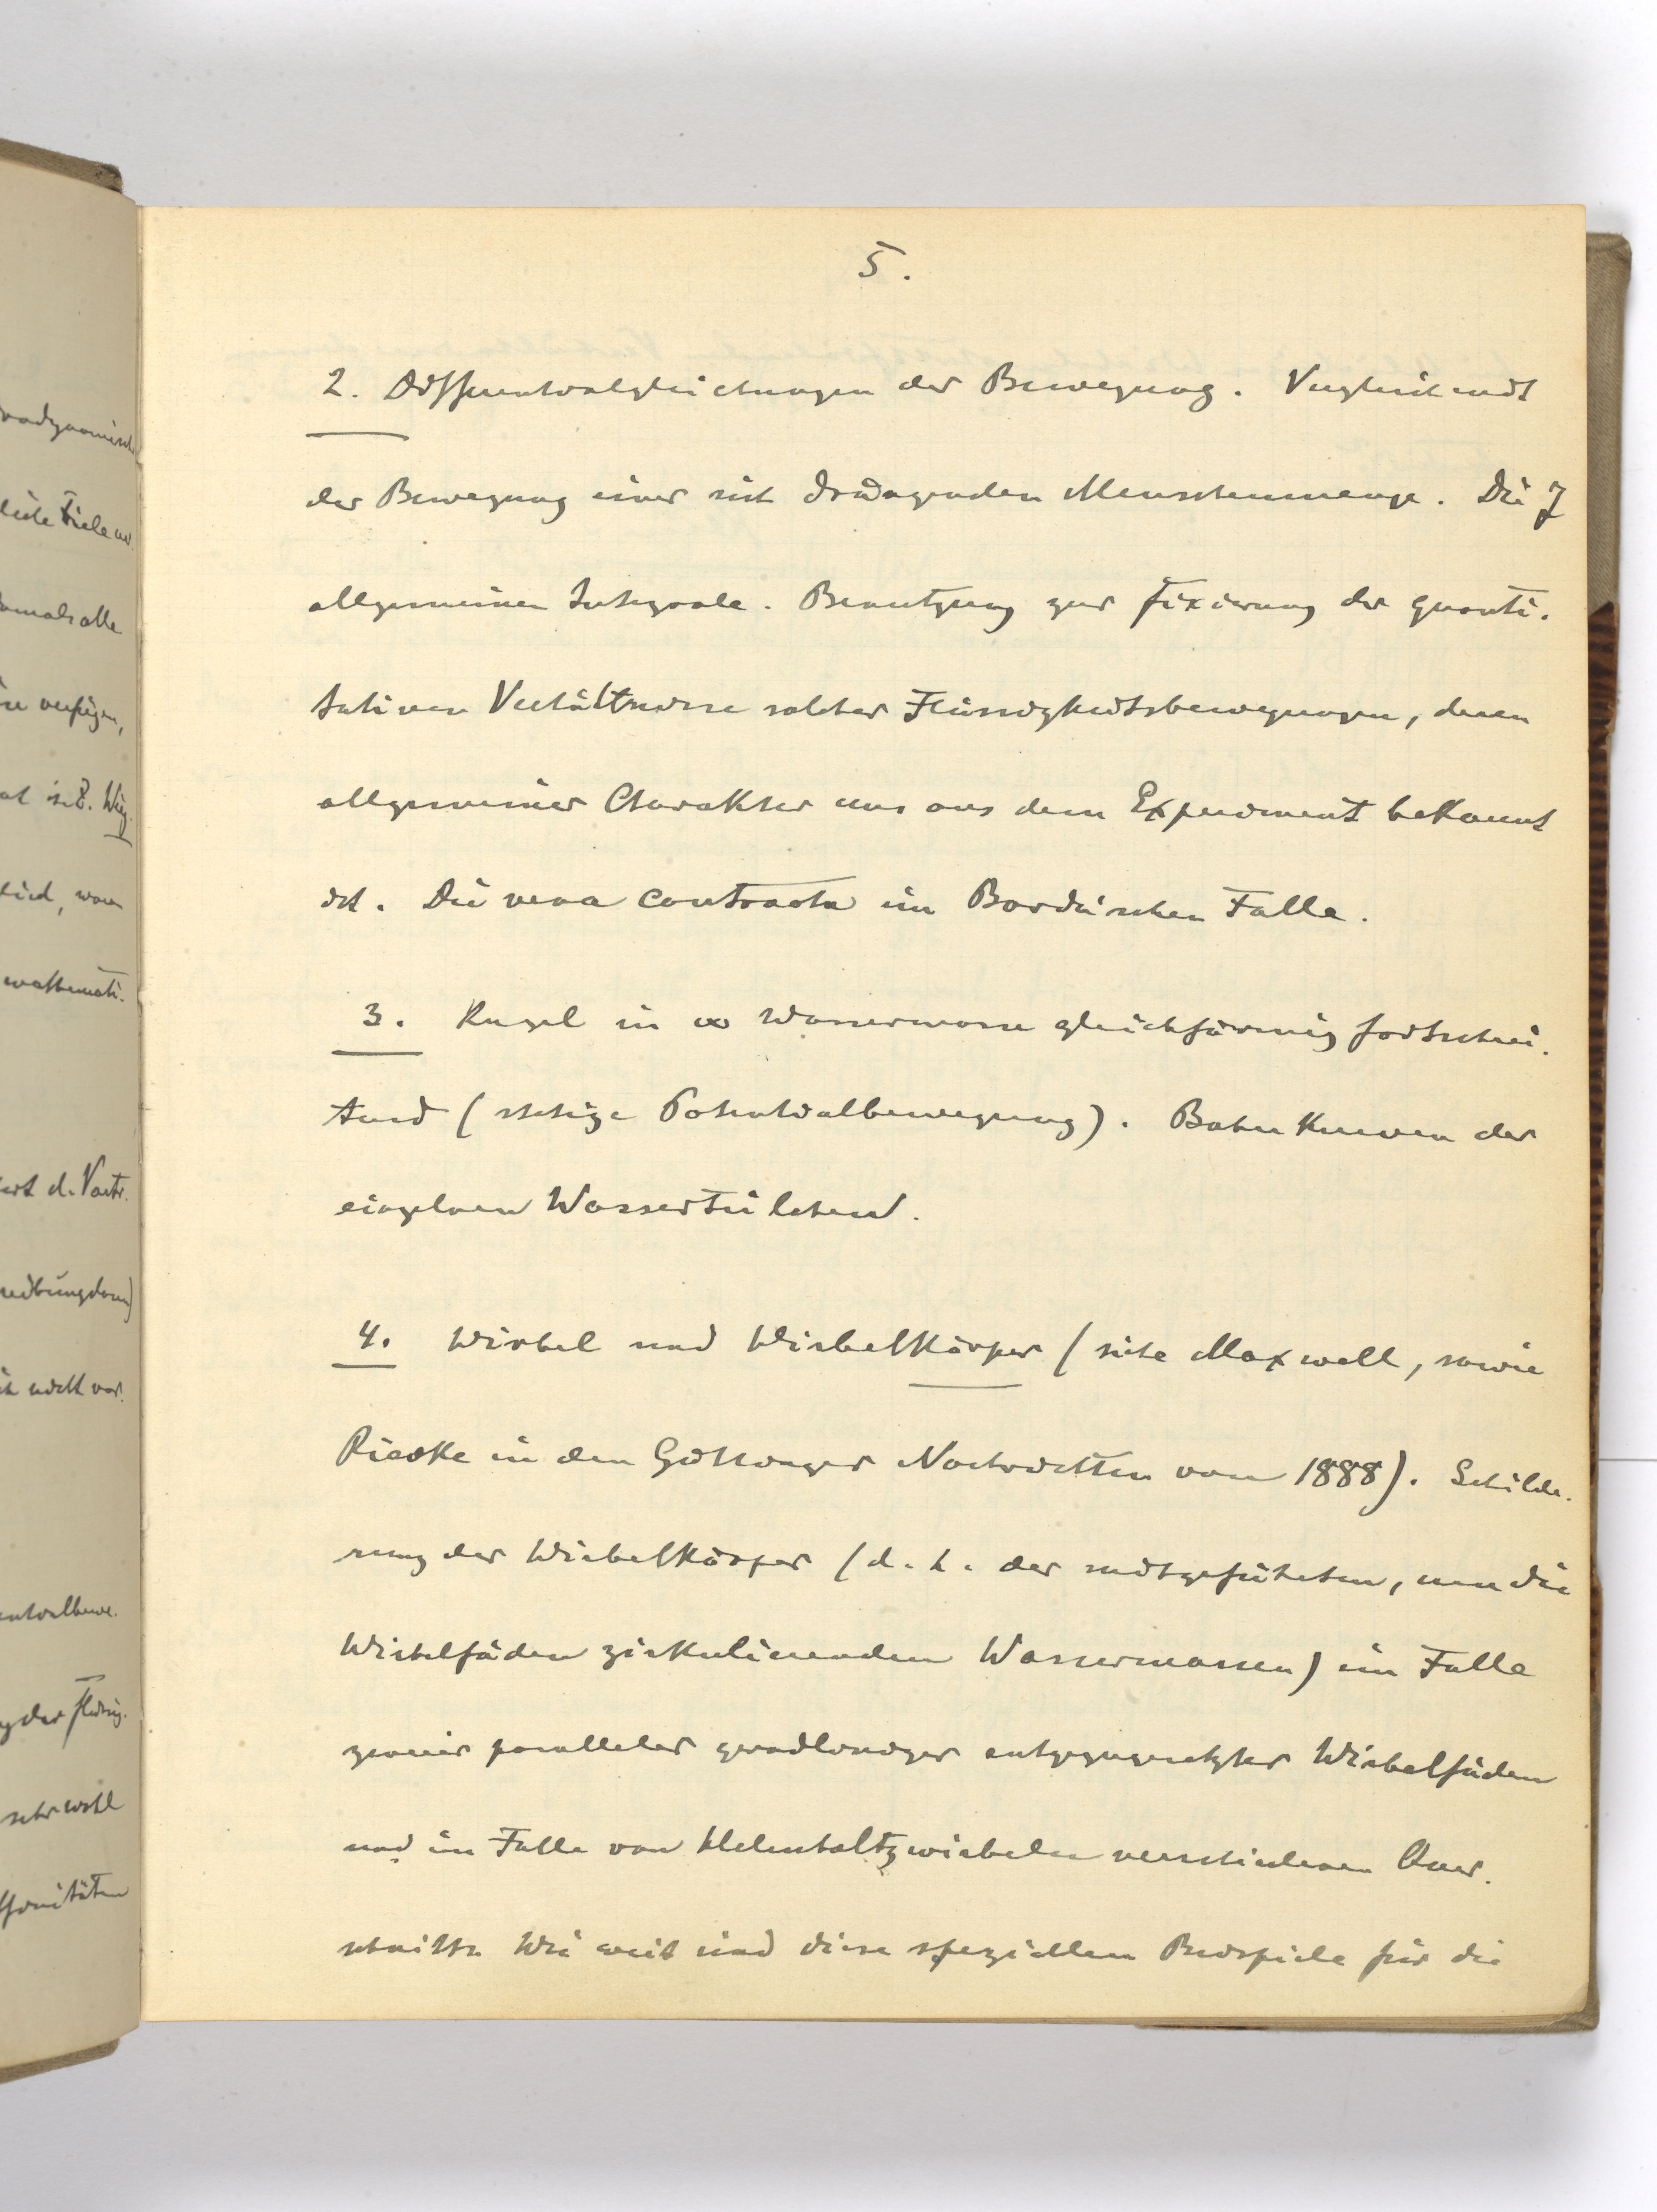 5.
2. Differentialgleichungen der Bewegung. Vergleich mit
der Bewegung einer sich drängenden Menschenmenge. Die 7
allgemeinen Integrale. Benutzung zur Fixierung der quanti-
tativen Verhältnisse solcher Flüssigkeitsbewegungen, deren
allgemeiner Charakter uns aus dem Experiment bekannt
ist. Die vena contracta im Borda'schen Falle.
3. Kugel in ∞ Wassermasse gleichförmig fortschrei-
tend (stetige Potentialbewegung). Bahnkurven der
einzelnen Wasserteilchen.
4. Wirbel und Wirbelkörper (siehe Maxwell, sowie
Riecke in den Göttinger Nachrichten von 1888). Schilde-
rung der Wirbelkörper (d. h. der mitgeführten, um die
Wirbelfäden zirkulierenden Wassermassen) im Falle
zweier paralleler geradliniger entgegengesetzter Wirbelfäden
und im Falle von Helmholtzwirbeln verschiedenen Quer-
schnitts. Wie weit sind diese speziellen Beispiele für die